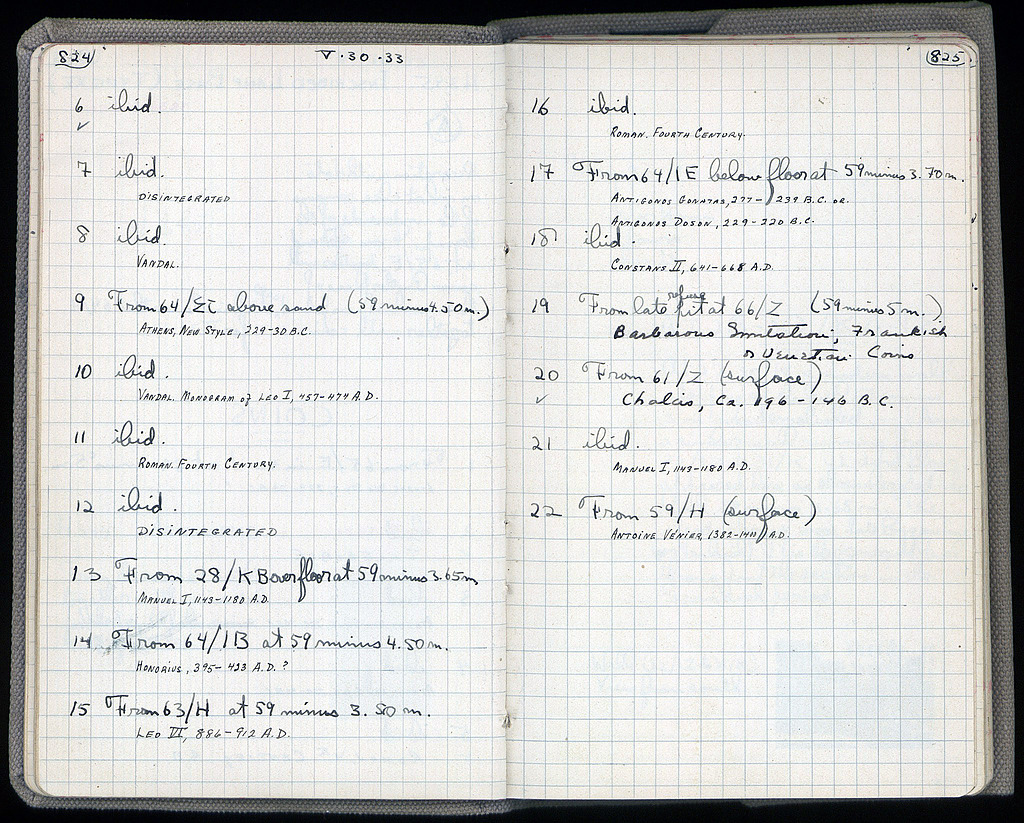 824
V·30·33
6 ibid.
✓
7 ibid.
DISINTEGRATED
8 ibid.
VANDAL.
9 From 64/ΣΤ above sand (59 minus 4.50 m.)
ATHENS, NEW STYLE, 229-30 B.C.
10 ibid.
VANDAL. MONOGRAM of LEO I, 457-474 A.D.
11 ibid.
ROMAN. FOURTH CENTURY.
12 ibid.
DISINTEGRATED
13 From 28/KB over floor at 59 minus 3.65m
MANUEL I, 1143-1180 A.D.
14 From 64/IB at 59 minus 4.50m.
HONORIUS, 395-423 A.D. ?
15 From 63/H at 59 minus 3.50 m.
LEO VI, 886-912 A.D.
825
16 ibid.
ROMAN. FOURTH CENTURY.
17 From 64/IE below floor at 59 minus 3.70 m.
ANTIGONOS GONATAS, 277-239 B.C. OR
ANTIGONOS DOSON, 229-220 B.C.
18 ibid.
CONSTANS II, 641-668 A.D.
19 From late refuse pit at 66/Z (59 minus 5 m.)
Barbarous Imitation; Frankish
or Venetian Coins
20 From 61/Z (surface)
✓ Chalcis, Ca. 196-146 B.C.
21 ibid.
MANUEL I, 1143-1180 A.D.
22 From 59/H (surface)
ANTOINE VÉNIER, 1382-1400 A.D.